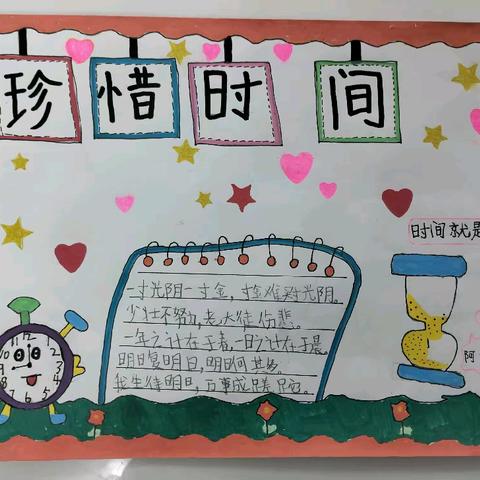 珍惜时间
时间就是
一寸光阴一寸金，寸金难买寸光阴。
少壮不努力，老大徒伤悲。
一年之计在于春，一日之计在于晨。
明日复明日，明日何其多。
我生待明日，万事成蹉跎。
阿
10 11 12 1
9
8
7 6 5